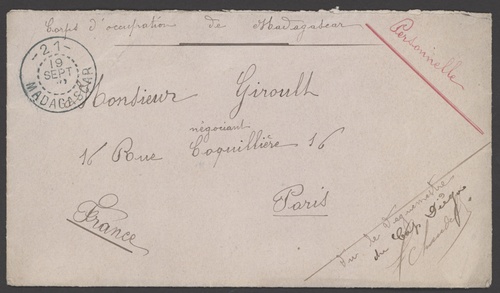 Corps d'occupation de Madagascar
Personnelle
-21-
19
SEPT
MADAGASCAR
Monsieur Giroult
négociant
16 Rue Coquillière 16
Paris
France
Vu le Vaguemestre